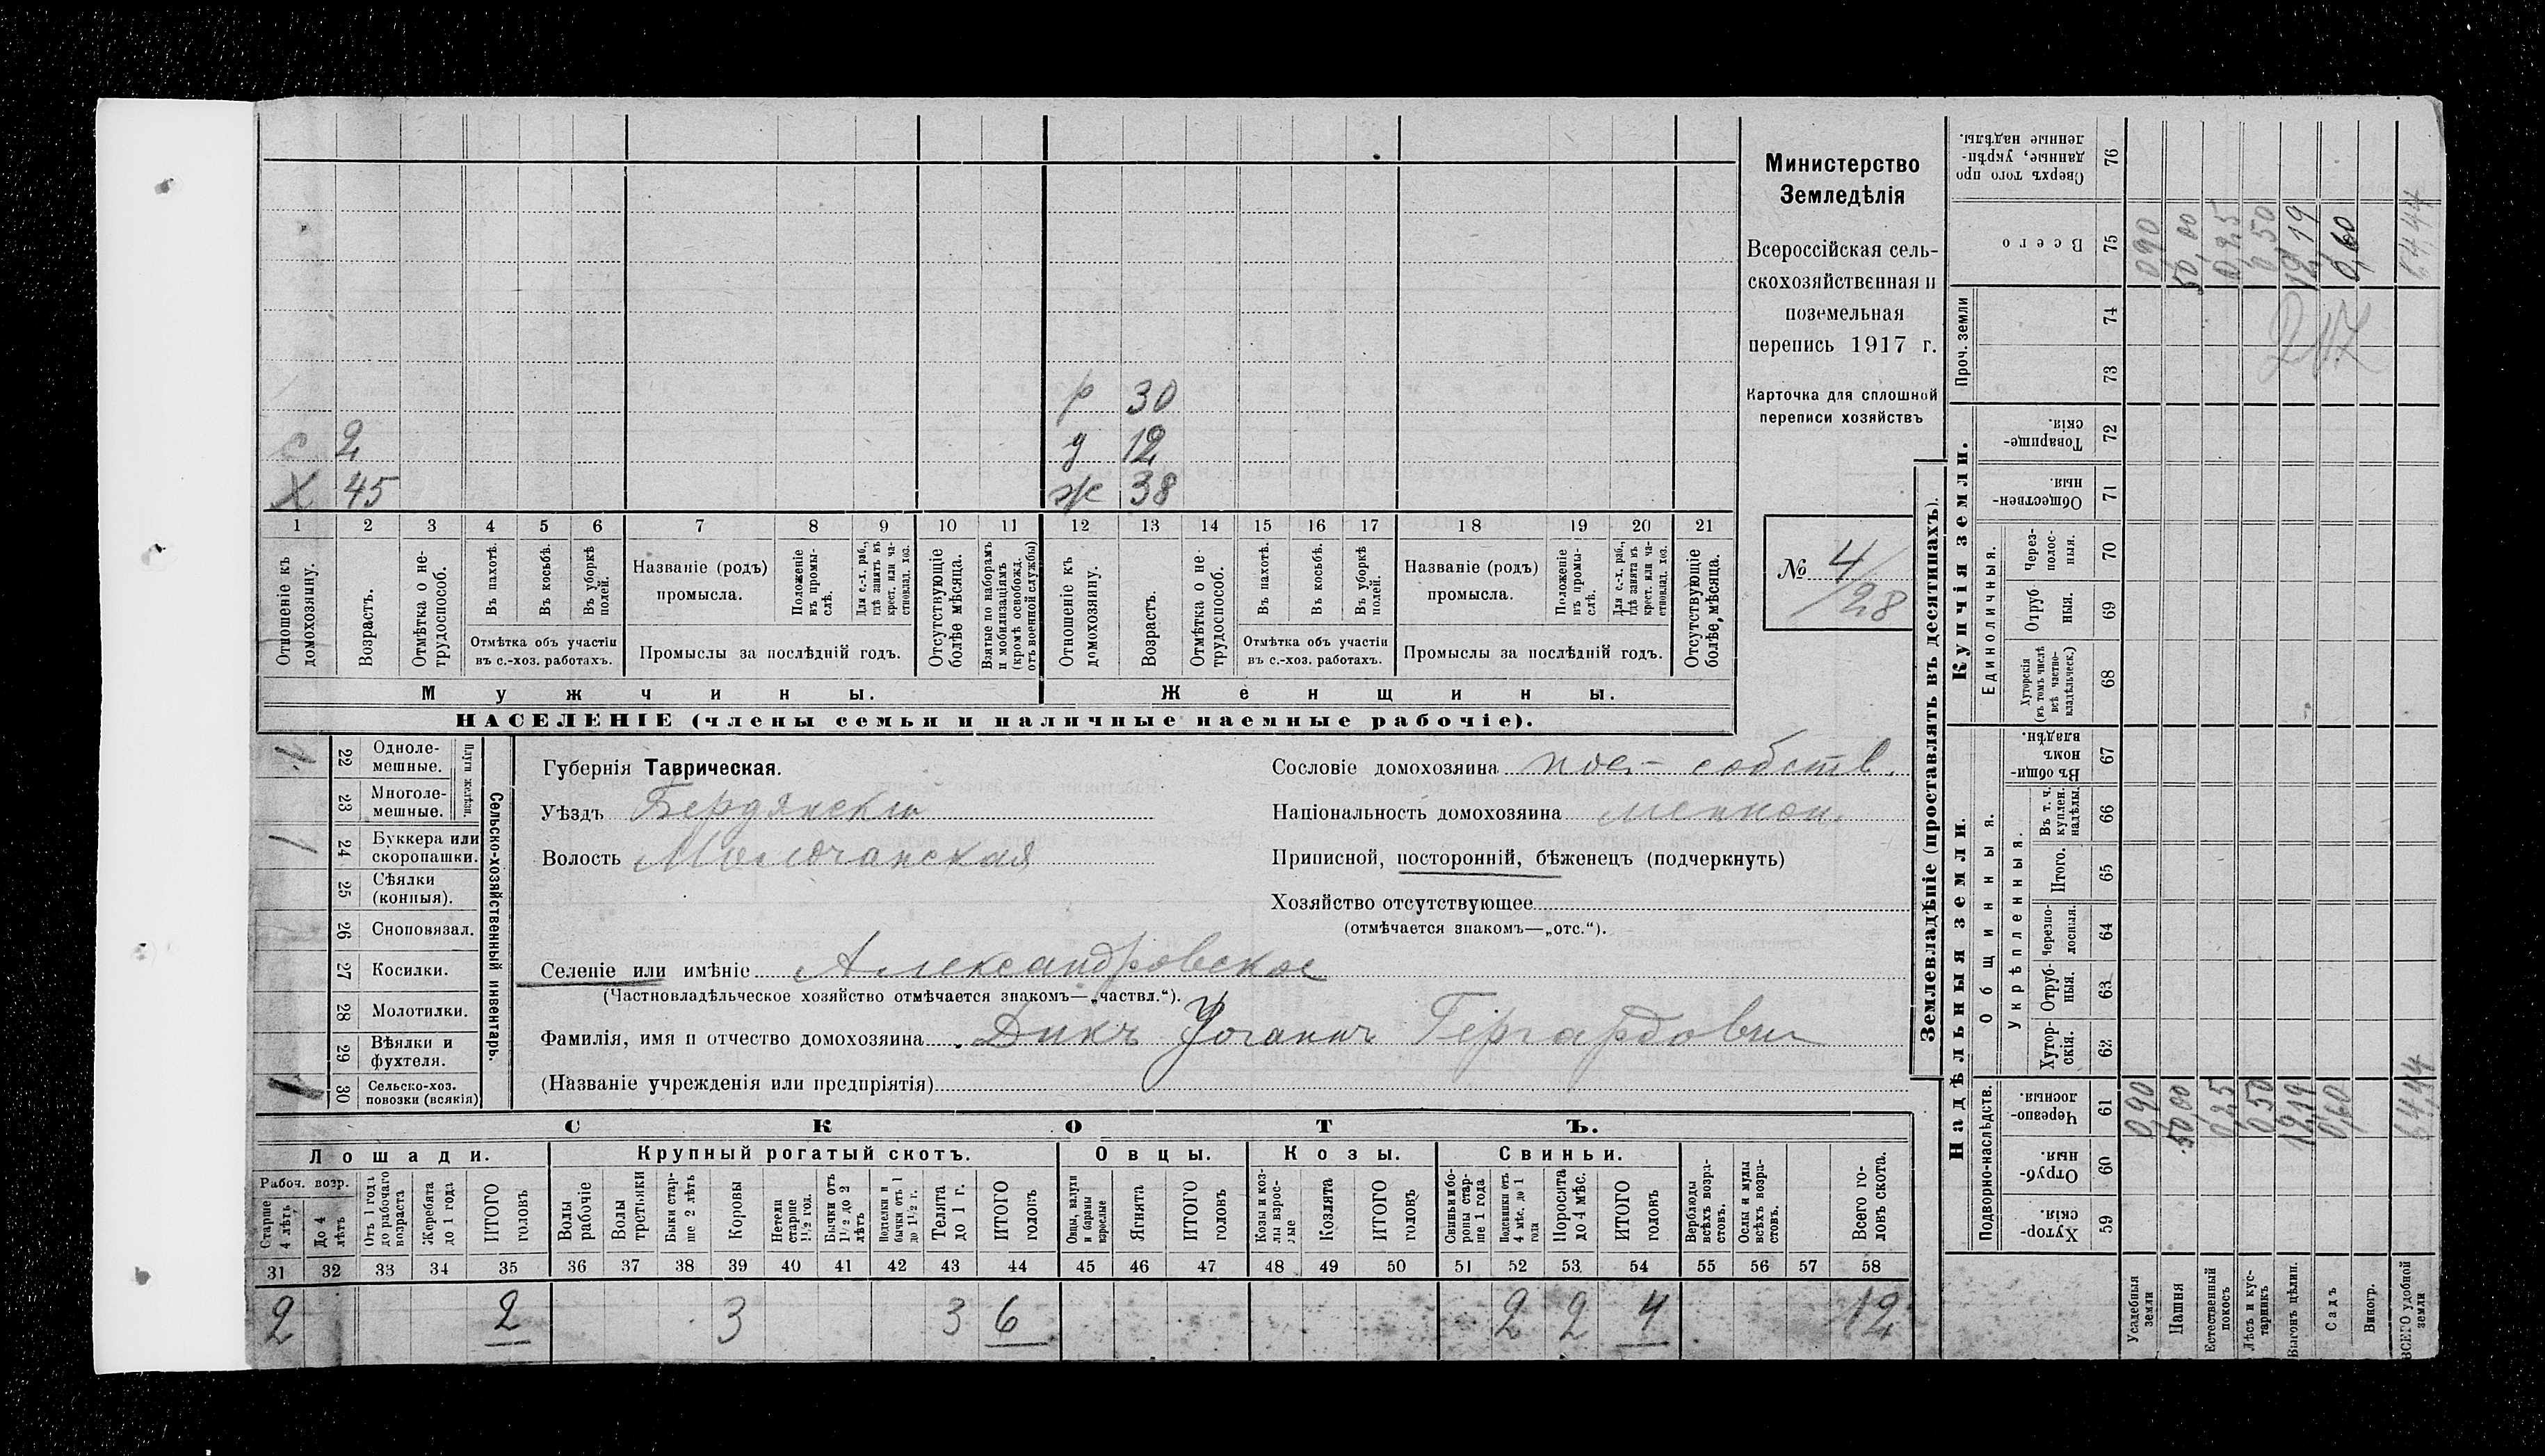 р 30
с 2 д 12
Х 45 ж 38
1 2 3 4 5 6 7 8 9 10 11 12 13 14 15 16 17 18 19 20 21
Отношеніе къ домохозяину.
Возрастъ.
Отмѣтка о нетрудоспособ.
Въ пахотѣ.
Въ косьбѣ.
Въ уборкѣ полей.
Отмѣтка объ участіи
въ с.-хоз. работахъ.
Названіе (родъ)
промысла.
Положеніе въ промыслѣ.
Для с.-х. раб., гдѣ занятъ въ крест. или частновлад. хоз.
Промыслы за послѣдній годъ.
Отсутствующіе болѣе мѣсяца.
Взятые по наборамъ и мобилизаціямъ (кромѣ освобожд. отъ военной службы)
Отношеніе къ домохозяину.
Возрастъ.
Отмѣтка о нетрудоспособ.
Въ пахотѣ.
Въ косьбѣ.
Въ уборкѣ полей.
Отмѣтка объ участіи
въ с.-хоз. работахъ.
Названіе (родъ)
промысла.
Положеніе въ промыслѣ.
Для с.-х. раб., гдѣ занята въ крест. или частновлад. хоз.
Промыслы за послѣдній годъ.
Отсутствующіе болѣе мѣсяца.
Мужчины. Женщины.
НАСЕЛЕНІЕ (члены семьи и наличные наемные рабочіе).
Министерство
Земледѣлія
Всероссійская сель-
скохозяйственная и
поземельная
перепись 1917 г.
Карточка для сплошной
переписи хозяйствъ
№ 4/28
Сельско-хозяйственный инвентарь.
Плуги желѣзн.
1 22 Одноле-
мешные.
23 Многоле-
мешные.
1 24 Буккера или
скоропашки.
25 Сѣялки
(конныя).
26 Сноповязал.
27 Косилки.
28 Молотилки.
29 Вѣялки и
фухтеля.
1 30 Сельско-хоз.
повозки (всякія)
Губернія Таврическая.
Уѣздъ Бердянскій
Волость Молочанская
Селеніе или имѣніе Александровское
(Частновладѣльческое хозяйство отмѣчается знакомъ—„частвл.“).
Фамилія, имя и отчество домохозяина Дикъ Іоганъ Гергардович
(Названіе учрежденія или предпріятія)
Сословіе домохозяина пос.- собств.
Національность домохозяина меннон.
Приписной, посторонній, бѣженецъ (подчеркнуть)
Хозяйство отсутствующее
(отмѣчается знакомъ—„отс.“).
СКОТЪ.
Лошади. Крупный рогатый скотъ. Овцы. Козы. Свиньи.
Рабоч. возр.
Старше 4 лѣтъ
До 4 лѣтъ
Отъ 1 года до рабочаго возраста
Жеребята до 1 года
ИТОГО головъ
Волы рабочіе
Волы третьяки
Быки старше 2 лѣтъ
Коровы
Нетели старше 1½ год.
Бычки отъ 1½ до 2 лѣтъ
Подтелки и бычки отъ 1 до 1½ г.
Телята до 1 г.
ИТОГО головъ
Овцы, валухи и бараны взрослые
Ягнята
ИТОГО головъ
Козы и козлы взрослые
Козлята
ИТОГО головъ
Свиньи боровы старше 1 года
Подсвинки отъ 4 мѣс. до 1 года
Поросята до 4 мѣс.
ИТОГО головъ
Верблюды всѣхъ возрастовъ.
Ослы и мулы всѣхъ возрастовъ.
Всего головъ скота.
31 32 33 34 35 36 37 38 39 40 41 42 43 44 45 46 47 48 49 50 51 52 53 54 55 56 57 58
2 2 3 3 6 2 2 4 12
Землевладѣніе (проставлять въ десятинахъ).
Купчія земли.
Надѣльныя земли.
Сверхъ того проданные, укрѣпленные надѣлы. 76
Всего 75 0,90 50,00 0,25 0,50 12,19 0,60 64,44
Проч. земли 74
73
Товарищескія. 72
Общественныя. 71
Единоличныя.
Черезполосныя. 70
Отрубныя. 69
Хуторскія (въ томъ числѣ всѣ частновладѣльческ.) 68
Общинныя.
Въ общиномъ владѣн. 67
Укрѣпленныя.
Въ т. ч. куплен. надѣлы. 66
Итого. 65
Черезполосныя. 64
Отрубныя. 63
Хуторскія. 62
Подворно-наслѣдств.
Черезполосныя. 61 0,90 50,00 0,25 0,50 12,19 0,60 64,44
Отрубныя. 60
Хуторскія. 59
Усадебныя земли
Пашня
Естественный покосъ
Лѣсъ и кустарникъ
Выгонъ цѣлин.
Садъ
Виногр.
ВСЕГО удобной земли